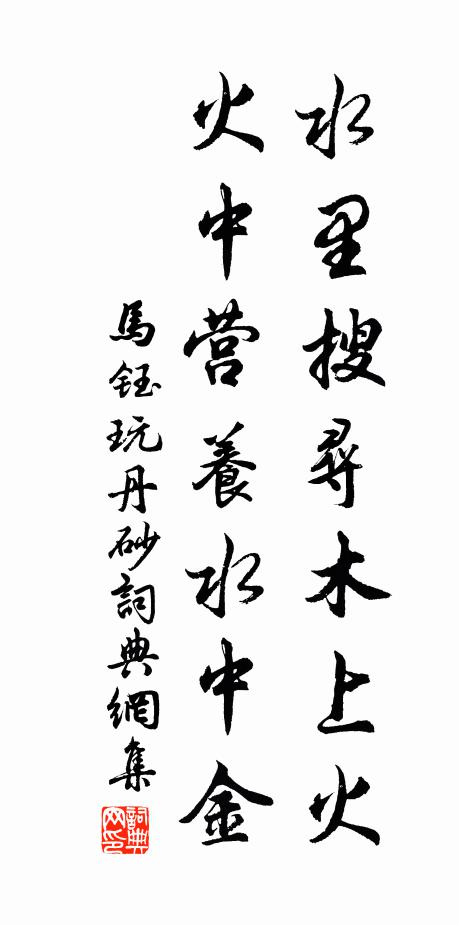 水里搜尋木上火
火中营養水中金
馬鈺玩丹砂詞典網集
詞典网印